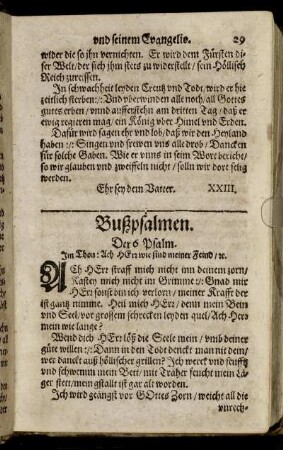 vnd seinem Evangelio. 29
wider die so jhn vernichten. Er wird dem Fürsten di-
ser Welt / der sich jhm stets zu widerstellt / sein Höllisch
Reich zureissen.
In schwachheit leyden Creutz vnd Todt / wird er hie
zeitlich sterben /: Vnd vberwinden alle noth / all Gottes
gutes erben / vnnd aufferstehn am dritten Tag / daß er
ewig regieren mag / ein König vber Himel vnd Erden.
Dafür wird sagen ehr vnd lob / daß wir den Heyland
haben :/: Singen vnd frewen vns alle drob / Dancken
für solche Gaben. Wie er vnns in seim Wort bericht /
so wir glauben vnd zweiffeln nicht / solln wir dort selig
werden.
Ehr sey dem Vatter. XXIII.
Bußpsalmen.
Der 6 Psalm.
Im Thon: Ach HErr wie sind meiner Feind / ꝛc.
ACh HErr straff mich nicht inn deinem zorn /
Kastey mich nicht im Grimme :/: Gnad mir
HErr sonst bin ich verlorn / meiner Krafft der
ist gantz nimme. Heil mich HErr / denn mein Bein
vnd Seel / vor grossem schrecken leyden quel / Ach Herr
mein wie lange?
Wend dich HErr löß die Seele mein / vmb deiner
güte willen :/: Dann in den Todt denckt man nit dein /
wer danckt auß höllischer grillen? Ich werck vnd seufftz
vnd schwemm mein Bett / mit Träher feucht mein Lä-
ger stett / mein gstallt ist gar alt worden.
Ich wird geängst vor GOttes Zorn / weicht all die
vnrech-